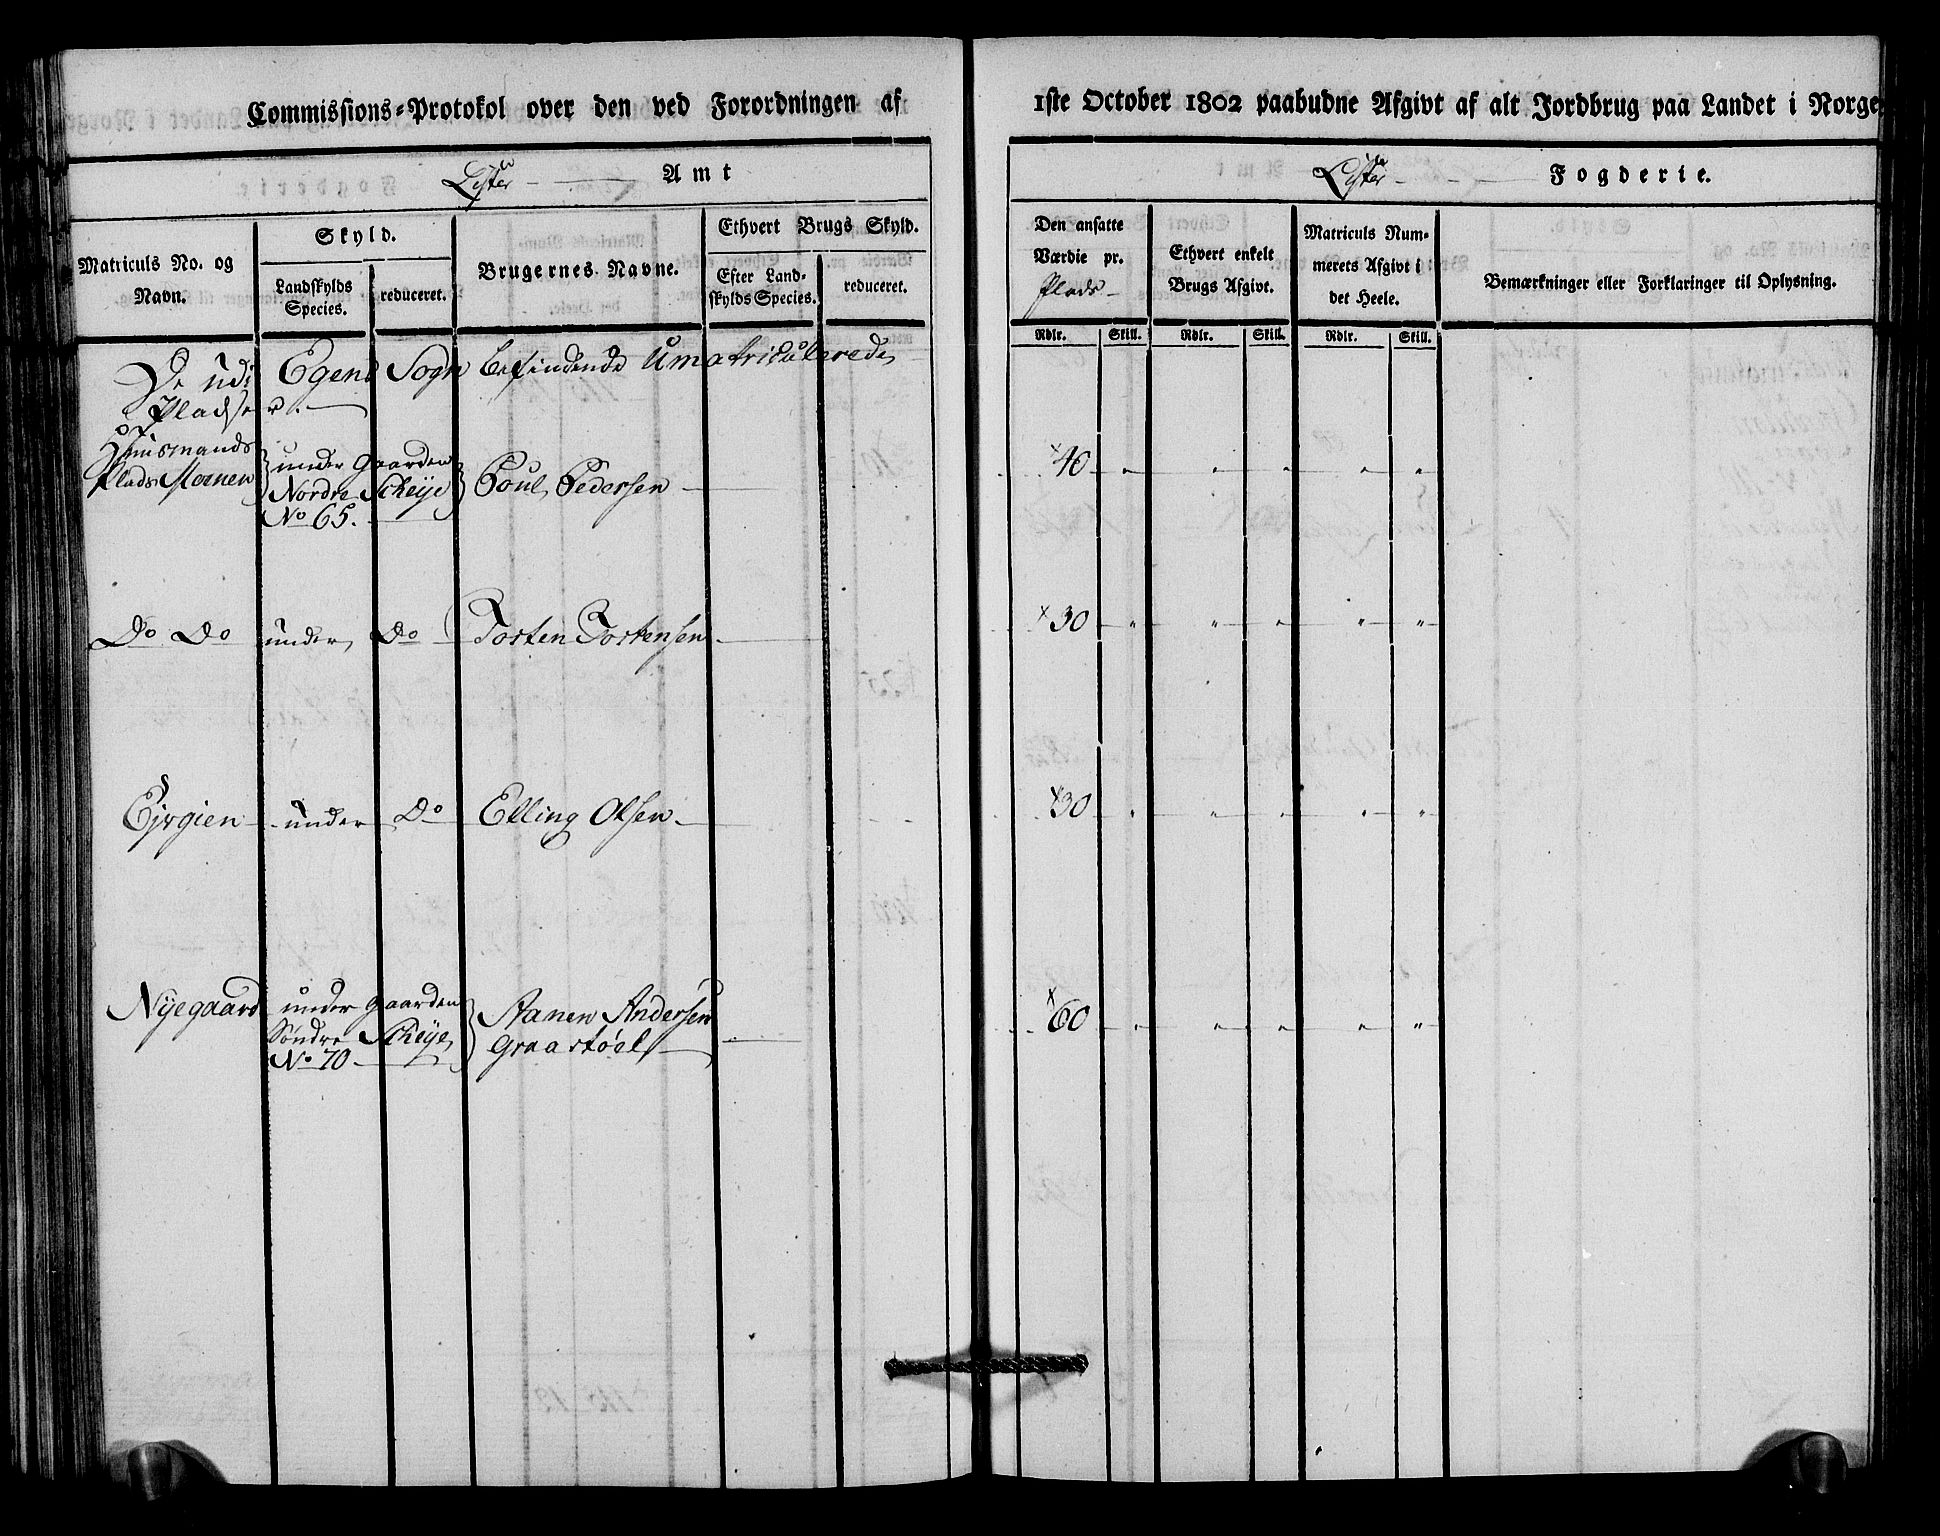 Commissions-Protokol over den ved Forordningen af
Lister Amt
Matriculs No. og Navn.
Skyld.
Landskylds Species.
reduceret.
Brugernes Navne.
Ethvert Brugs Skyld.
Efter Landskylds Species.
reduceret.
De udi Egens Sogn befindende Umatriculerede
Pladser.
Huusmands under Gaarden
Plads Moenen Nordre Scheÿe Poul Pedersen
No 65.
Do Do under Do Torsten Torstensen
under Do Elling Olsen
Nÿegaard under Gaarden Aanen Andersen
Søndre Scheÿe Graastøel
No 70
1ste October 1802 paabudne Afgivt af alt Jordbrug paa Landet i Norge
Lister Fogderie.
Den ansatte Værdie pr. Plads
Ethvert enkelt Brugs Afgivt.
Matriculs Nummerets Afgivt i det Heele.
Bemærkninger eller Forklaringer til Oplysning.
Rdlr. Skill. Rdlr. Skill. Rdlr. Skill.
x 40 " " " " "
x 30 " " " " "
x 30 " " " " "
x 60 " " " " "